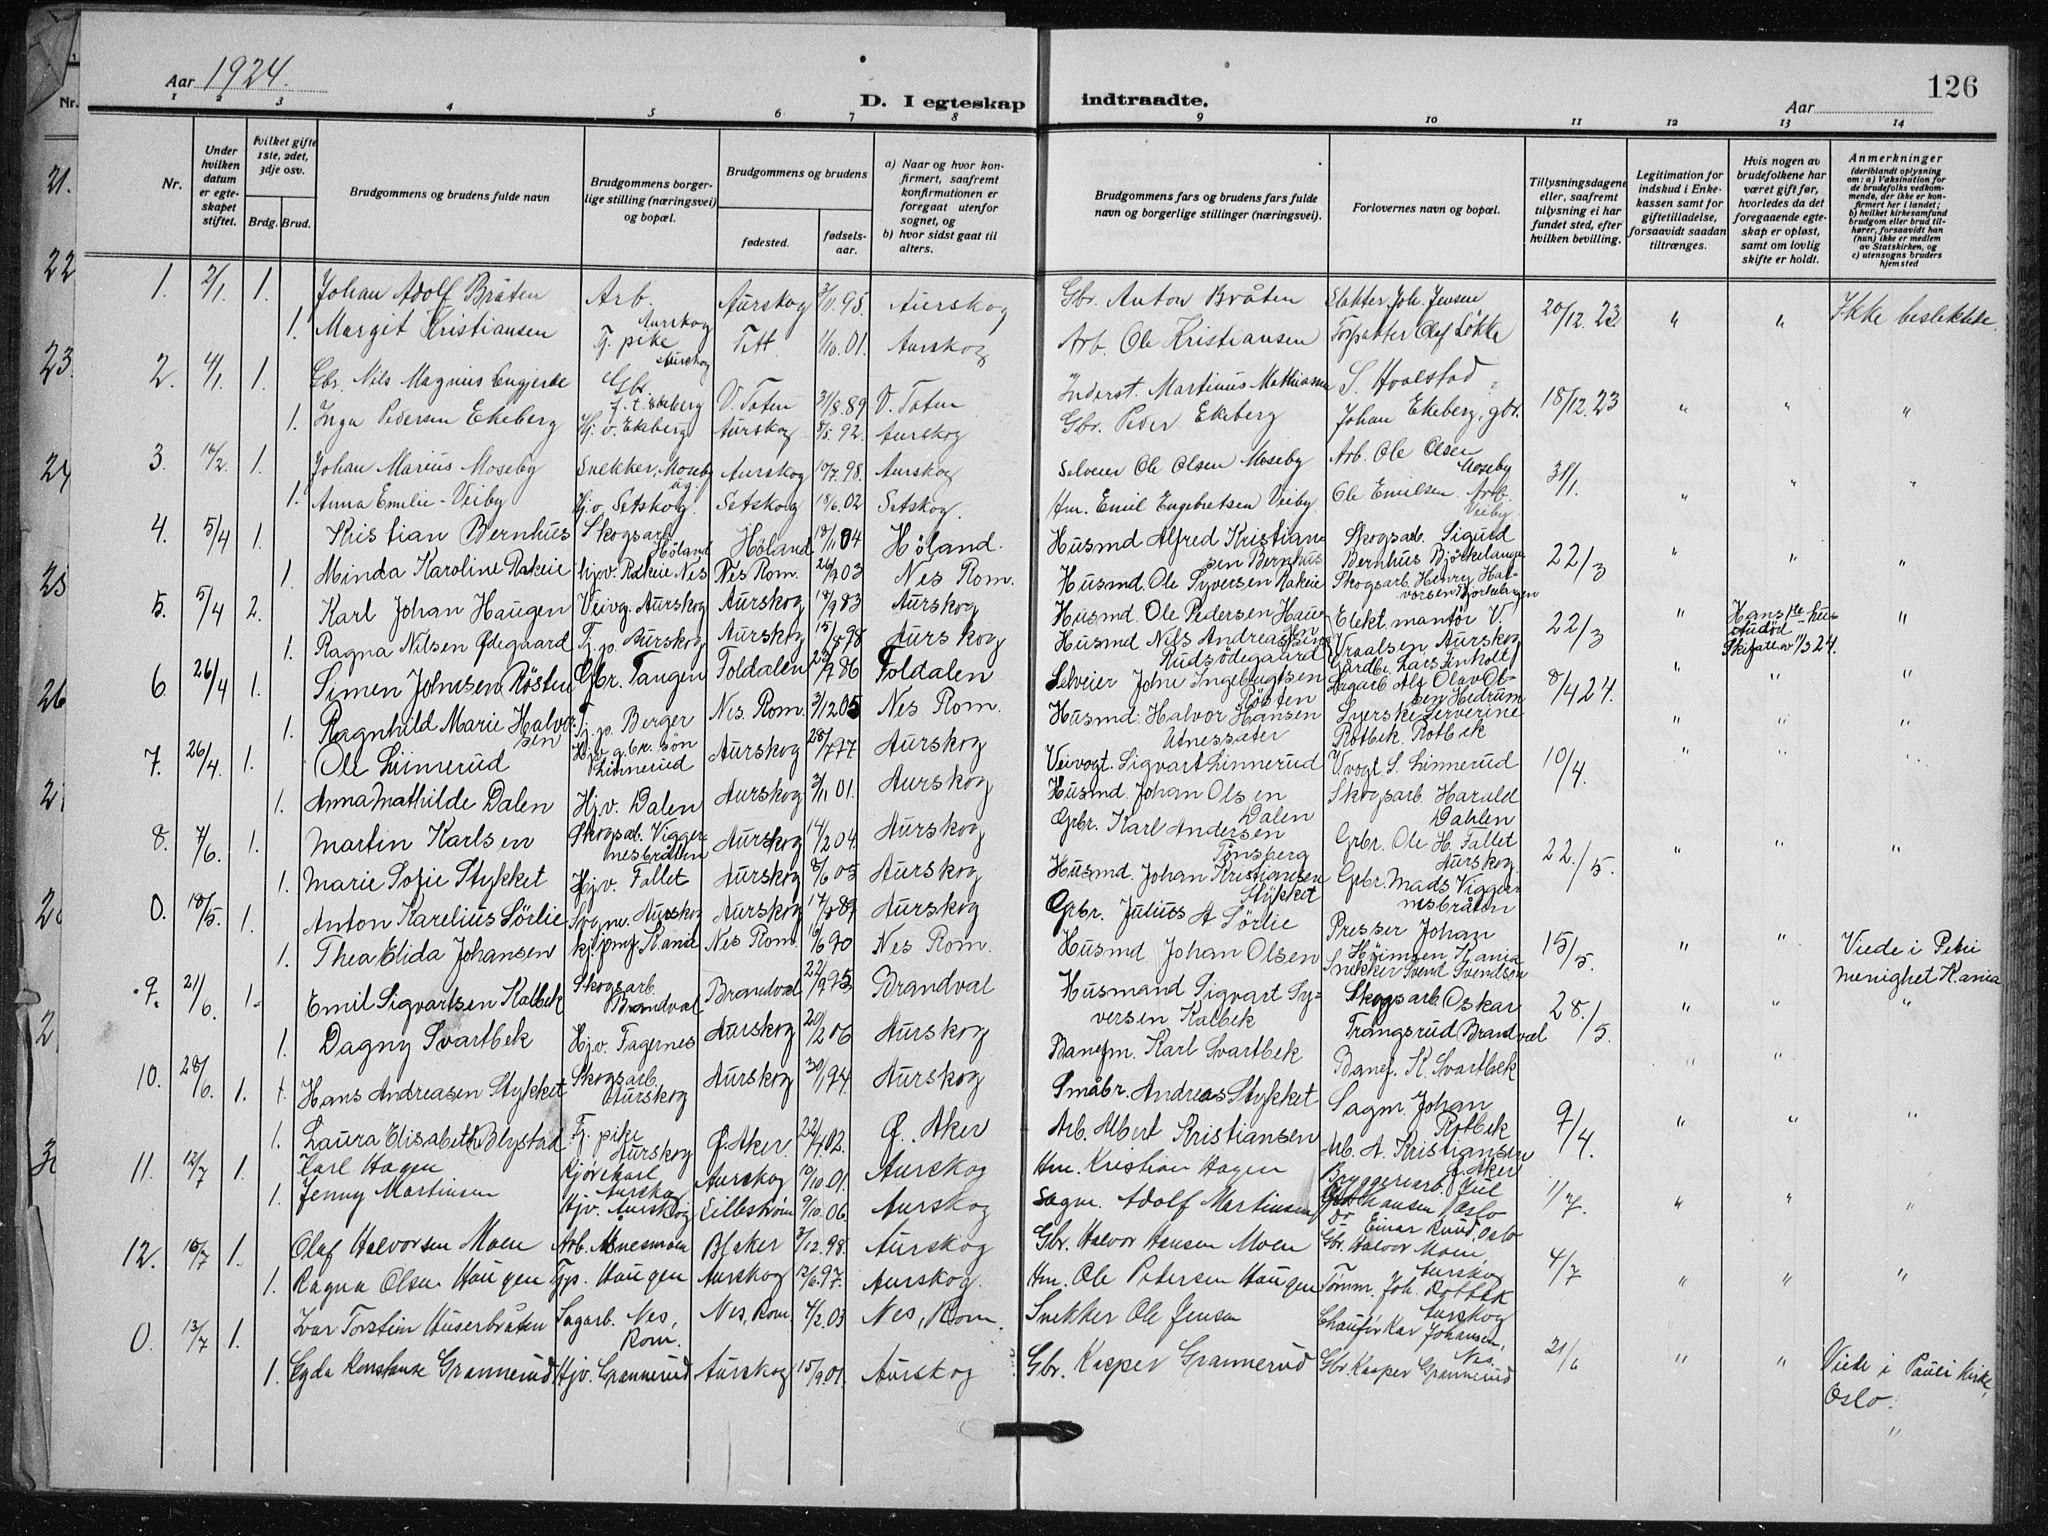 126
Aar 1924.
D. I egteskap indtraadte.
Aar
1 2 3 4 5 6 7 8 9 10 11 12 13 14
Nr.
Under hvilken datum er egteskapet stiftet.
Hvilket gifte 1ste, 2det, 3dje osv.
Brdg. Brud.
Brudgommens og brudens fulde navn
Brudgommens borgerlige stilling (næringsvei) og bopæl.
Brudgommens og brudens
fødested.
fødselsaar.
a) Naar og hvor konfirmert, saafremt konfirmationen er foregaat utenfor sognet, og
b) hvor sidst gaat til alters.
Brudgommens fars og brudens fars fulde navn og borgerlige stillinger (næringsvei).
Forlovernes navn og bopæl.
Tillysningsdagene eller, saafremt tillysning ei har fundet sted, efter hvilken bevilling.
Legitimation for indskud i Enkekassen samt for giftetilladelse, forsaavidt saadan tiltrænges.
Hvis nogen av brudefolkene har været gift før, hvorledes da det foregaaende egteskap er opløst, samt om lovlig skifte er holdt.
Anmerkninger (deriblandt oplysning om: a) Vaksination for de brudefolks vedkommende, der ikke er konfirmert her i landet; b) hvilket kirkesamfund brudgom eller brud tilhører, forsaavidt han (hun) ikke er medlem av Statskirken, og c) utensogns bruders hjemsted
1. 2/1 1. Johan Adolf Bråten Arb. Aurskog Aurskog 95. Aurskog Gbr. Anton Bråten Slakter Joh. Jensen 20/12. 23 " " Ikke beslektede.
1. Margit Kristiansen Tj. pike Aurskog Fett 1/10. 01. Aurskog Arb. Ole Kristiansen Olaf Løkke
2. 4/1. 1. Gbr. Nils Magnus Gbr. Ekeberg V. Toten 31/8. 89 V. Toten Martinus Mathiasen S. Hvalstad 18/12. 23 " " "
1. Inga Pedersen Ekeberg Hj. v. Ekeberg Aurskog 8/5. 92. Aurskog Gbr. Peder Ekeberg Johan Ekeberg, gbr.
3. 16/2. 1. Johan Marius Moseby Snekker, Moseby Aurskog 10/7. 98. Aurskog Selveier Ole Olsen Moseby Arb. Ole Olsen Moseby 31/1. " " "
1. Anna Emilie Veiby Hj. v. Setskog. Setskog 18/6. 02 Setskog. Hm. Emil Engebretsen Veiby Ole Emilsen Arb. Veiby
4. 5/4 1. Kristian Bernhus Skogsarb. Höland Höland 18/11 04 Höland. Husmd Alfred Kristiansen Bernhus Skogsarb. Sigurd Bernhus Björkelangen 22/3 " " "
1. Minda Karoline Rakeie hjv. Rakeie Nes Nes Rom. 26/2 03 Nes Rom. Husmd. Ole Syversen Rakeie Skogsarb. Henry Halvorsen Bjorkelangen
5. 5/4 2. Karl Johan Haugen Veivg. Aurskog Aurskog 18/9 83 Aurskog Husmd. Ole Pedersen Haugen Elekt. mantör V. Vraalsen Aurskog 22/3 " Hans 1ste hustru död "
1. Ragna Nilsen Ödegaard Tj. p. Aurskog Aurskog 15/8 98 Aurskog Husmd Nils Andreassen Rudsödegaard Gårdbr. Lars Finholt
6. 26/4 1. Simen Johnsen Rösten Gbr. Tangen Foldalen 23/7 86 Foldalen Selveier John Ingebrigtsen Rösten Sagarb. Alf Olav Olsen Hedrum 8/4 24. " " "
1. Ragnhild Marie Halvorsen Tj. p. Berger Nes. Rom. 3/12 05 Nes Rom. Husmd. Halvor Hansen Utnessæter Syerske Serverine Rotbek. Rotbek " " "
7. 26/4. 1. Ole Linnerud Hjv. gbr. sön Linnerud Aurskog 28/7 77 Aurskog Veivogt. Sigvart Linnerud Vvogt S. Linnerud 10/4. " " "
1. Anna Mathilde Dalen Hjv. Dalen Aurskog 3/11 01. Aurskog Husmd. Johan Olsen Dalen Skogsarb. Harald Dahlen
8. 7/6. 1. Martin Karlsen Skogsarb. Viggernesbråten Aurskog 14/2 04. Aurskog Gbr. Karl Andersen Tonsberg Gbr. Ole H. Fallet Aurskog 22./5. " " "
1. Marie Sofie Stykket Hjv. Fallet Aurskog 8/6 05 Aurskog Husmd. Johan Kristiansen Stykket Gbr. Mads Viggernesbråten
0. 18/5. 1. Anton Karelius Sörlie Aurskog Aurskog 87 Aurskog Gbr. Julius A Sörlie Presser Johan Höimoen Kania 15/5. " " Viede i Petri menighet Kania
1. Thea Elida Johansen Kania Nes Rom. 16/6 90 Nes Rom. Husmd. Johan Olsen Snekker Svend Svendsen
9. 21/6. 1. Emil Sigvartsen Kalbek Skogsarb. Brandval Brandval 22/9 95 Brandval Husmand Sigvart Syversen Kalbek Skogsarb. Oskar Trangsrud Brandval 28./5. " " "
1. Dagny Svartbek Hjv. Fagernes Aurskog 20/2 06 Aurskog Banefm. Karl Svartbek Banef. K. Svartbek " "
10. 28/6. 1. Hans Andreasen Stykket Skogsarb. Aurskog Aurskog 30/1 94 Aurskog Småbr. Andreas Stykket Sagm. Johan Rotbek 9/4. " " "
1. Laura Elisabeth Blystad Tj. pike Aurskog Ö. Aker. 22/4 02. Ö. Aker Arb. Albert Kristiansen Arb. A. Kristiansen Ö. Aker
11. 12/7 1. Carl Hagen Kjörekarl Aurskog Aurskog 10/10 01. Aurskog Hm. Kristian Hagen Bryggeriarb. Juel Oslo 1/7. " " "
1. Jenny Martinsen Hjv. Aurskog Lillestrøm 9/10. 06. Aurskog Sagm. Adolf Martinsen Do Einar Ruud, Oslo
12. 16/7 1. Olaf Halvorsen Moen Arb. Blaker 3/12. 98. Aurskog Gbr. Halvor Hansen Moen Gbr. Halvor Moen, Aurskog 4/7 " " "
1. Ragna Olsen Haugen Tjp. Haugen Aurskog 12/6. 97. Aurskog. Hm. Ole Pedersen Haugen Tömm. Joh. Rotbek Aurskog
0. 13/7 1. Ivar Torstein Huserbråten Sagarb. Nes, Rom. Nes, Rom. 4/2. 03 Nes, Rom. Snekker Ole Jensen Chauför Kar Johansen, Nes. 21/6 " " Viede i Pauli Kirke, Oslo.
1. Gyda Konstanse Grannerud Hjv. Grannerud Aurskog 15/9. 01. Aurskog Gbr. Kasper Grannerud Gbr. Kasper Grannerud "
21.
22
23.
24
25
26